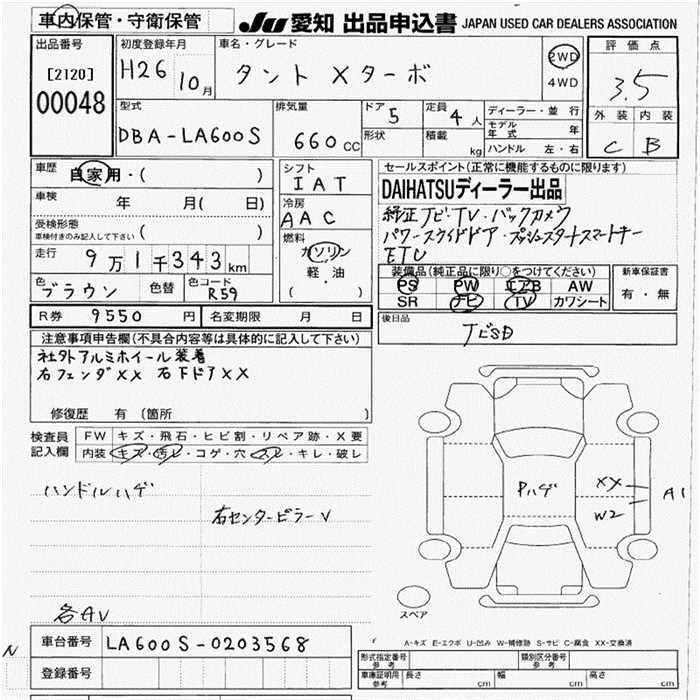 車内保管・守衛保管
JU 愛知 出品申込書 JAPAN USED CAR DEALERS ASSOCIATION
出品番号
[2120]
00048
初度登録年月
H26 10月
車名・グレード
タント Xターボ
2WD
4WD
評価点
3.5
外装 内装
C B
型式
DBA-LA600S
排気量
660cc
ドア 5
形状
定員 4人
積載 kg
ディーラー・並行
モデル年式 年
ハンドル 左・右
車歴
自家用・( )
車検 年 月( 日)
受検形態
車検付きのみ記入して下さい ( )
走行 9万1千343km
色 ブラウン 色替 色コード R59
R券 9550円 名変期限 月 日
シフト
IAT
冷房
AAC
燃料
ガソリン
軽・油
( )
セールスポイント(正常に機能するものに限ります)
DAIHATSUディーラー出品
純正ナビ・TV・バックカメラ
パワースライドドア・プッシュスタートスマートキー
ETC
装備品(純正品に限り○をつけてください)
PS PW エアB AW
SR ナビ TV カワシート
新車保証書
有・無
後日品
ナビSD
注意事項申告欄(不具合内容等は具体的に記入して下さい)
社外アルミホイール装着
右フェンダXX 右下ドアXX
修復歴 有(箇所 )
検査員記入欄
FW キズ・飛石・ヒビ割・リペア跡・X要
内装 キズ・汚レ・コゲ・穴・スレ・キレ・破レ
ハンドルハゲ
右センターピラーV
各AV
Pハゲ
XX
W2
A1
スペア
A-キズ E-エクボ U-凹み W-補修跡 S-サビ C-腐食 XX-交換済
N
車台番号 LA600S-0203568
登録番号
形式指定番号 参考
類別区分番号 参考
車庫証明用 参考 長さ cm 幅 cm 高さ cm